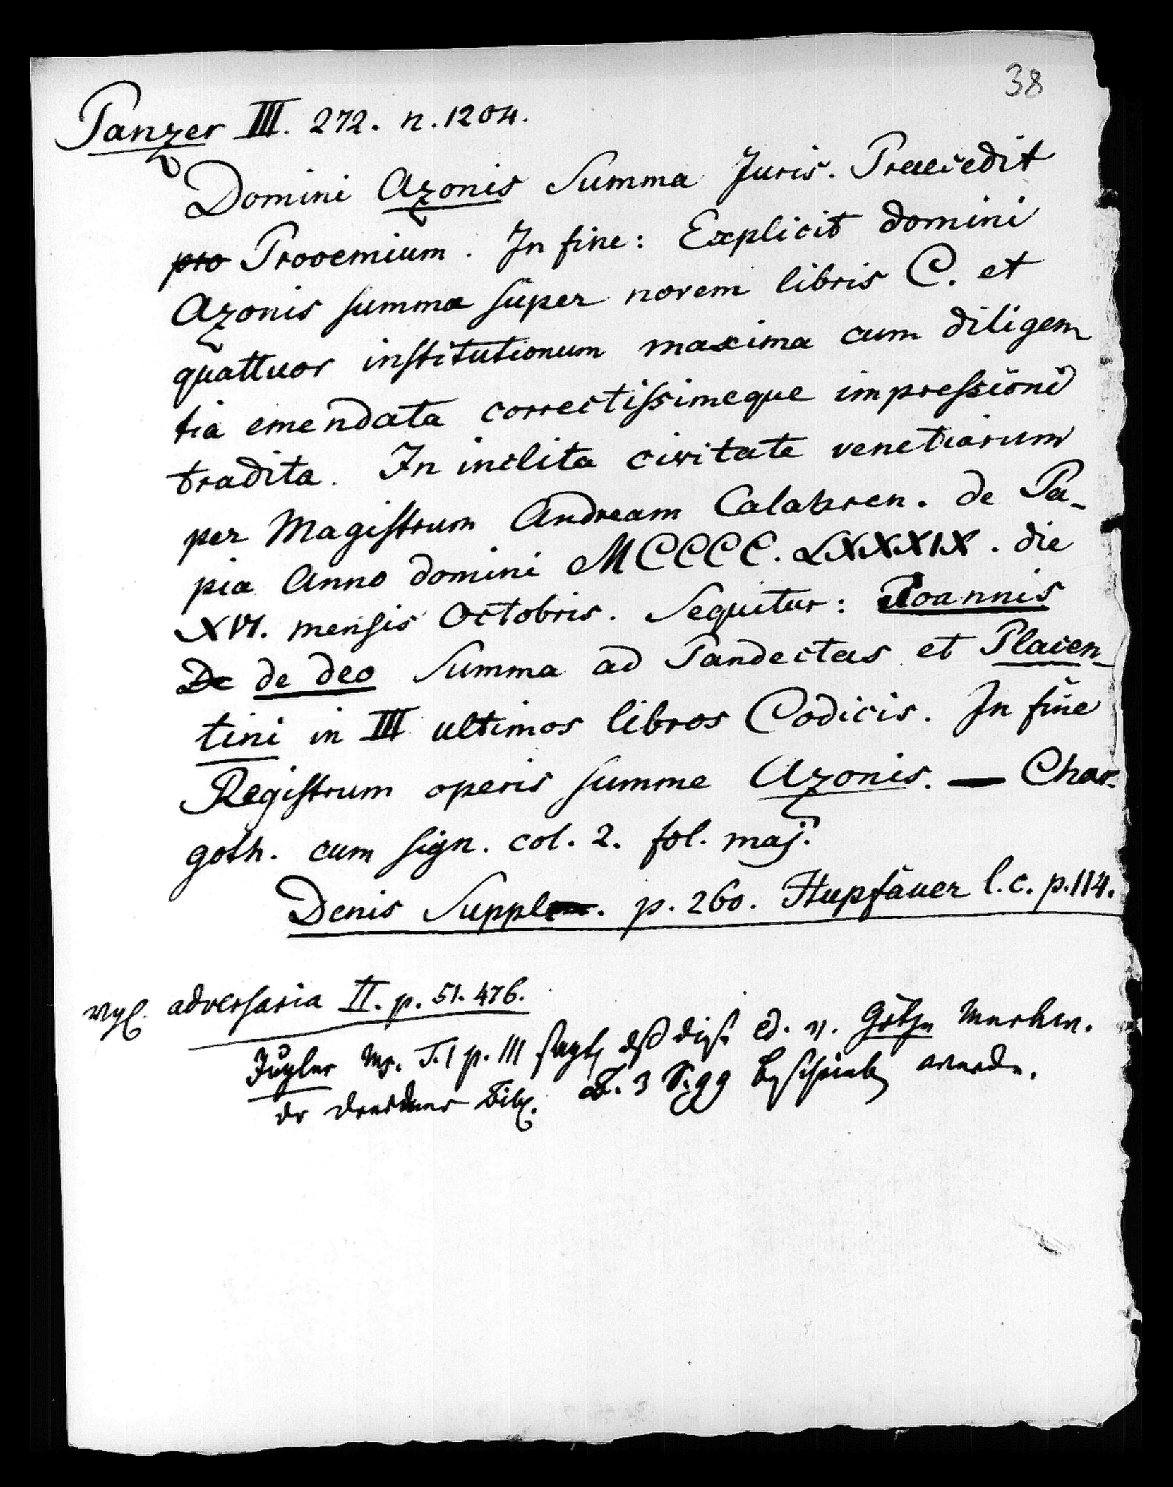 38
Panzer III. 272. n. 1204.
Domini Azonis Summa Juris. Praecedit
pro Prooemium. In fine: Explicit domini
Azonis summa super novem libris C. et
quattuor institutionum maxima cum diligen
tia emendata correctissimeque impressioni
tradita. In inclita civitate venetiarum
per Magistrum Andream Calabren. de Pa-
pia Anno domini MCCCC. LXXXIX. die
XVI. mensis Octobris. Sequitur: Joannis
De de deo Summa ad Pandectas et Placen-
tini in III ultimos libros Codicis. In fine
Registrum operis summe Azonis. — Char.
goth. cum sign. col. 2. fol. maj.
Denis Suppl. p. 260. Hupfäuer l.c. p. 114.
Vgl. adversaria II. p. 51. 476.
Jugler Mp. T. I p. III sagt, daß diese Ed. v. Götze Merkw.
der Dresdner Bibl. B. 3 S. 99 beschrieben werde.